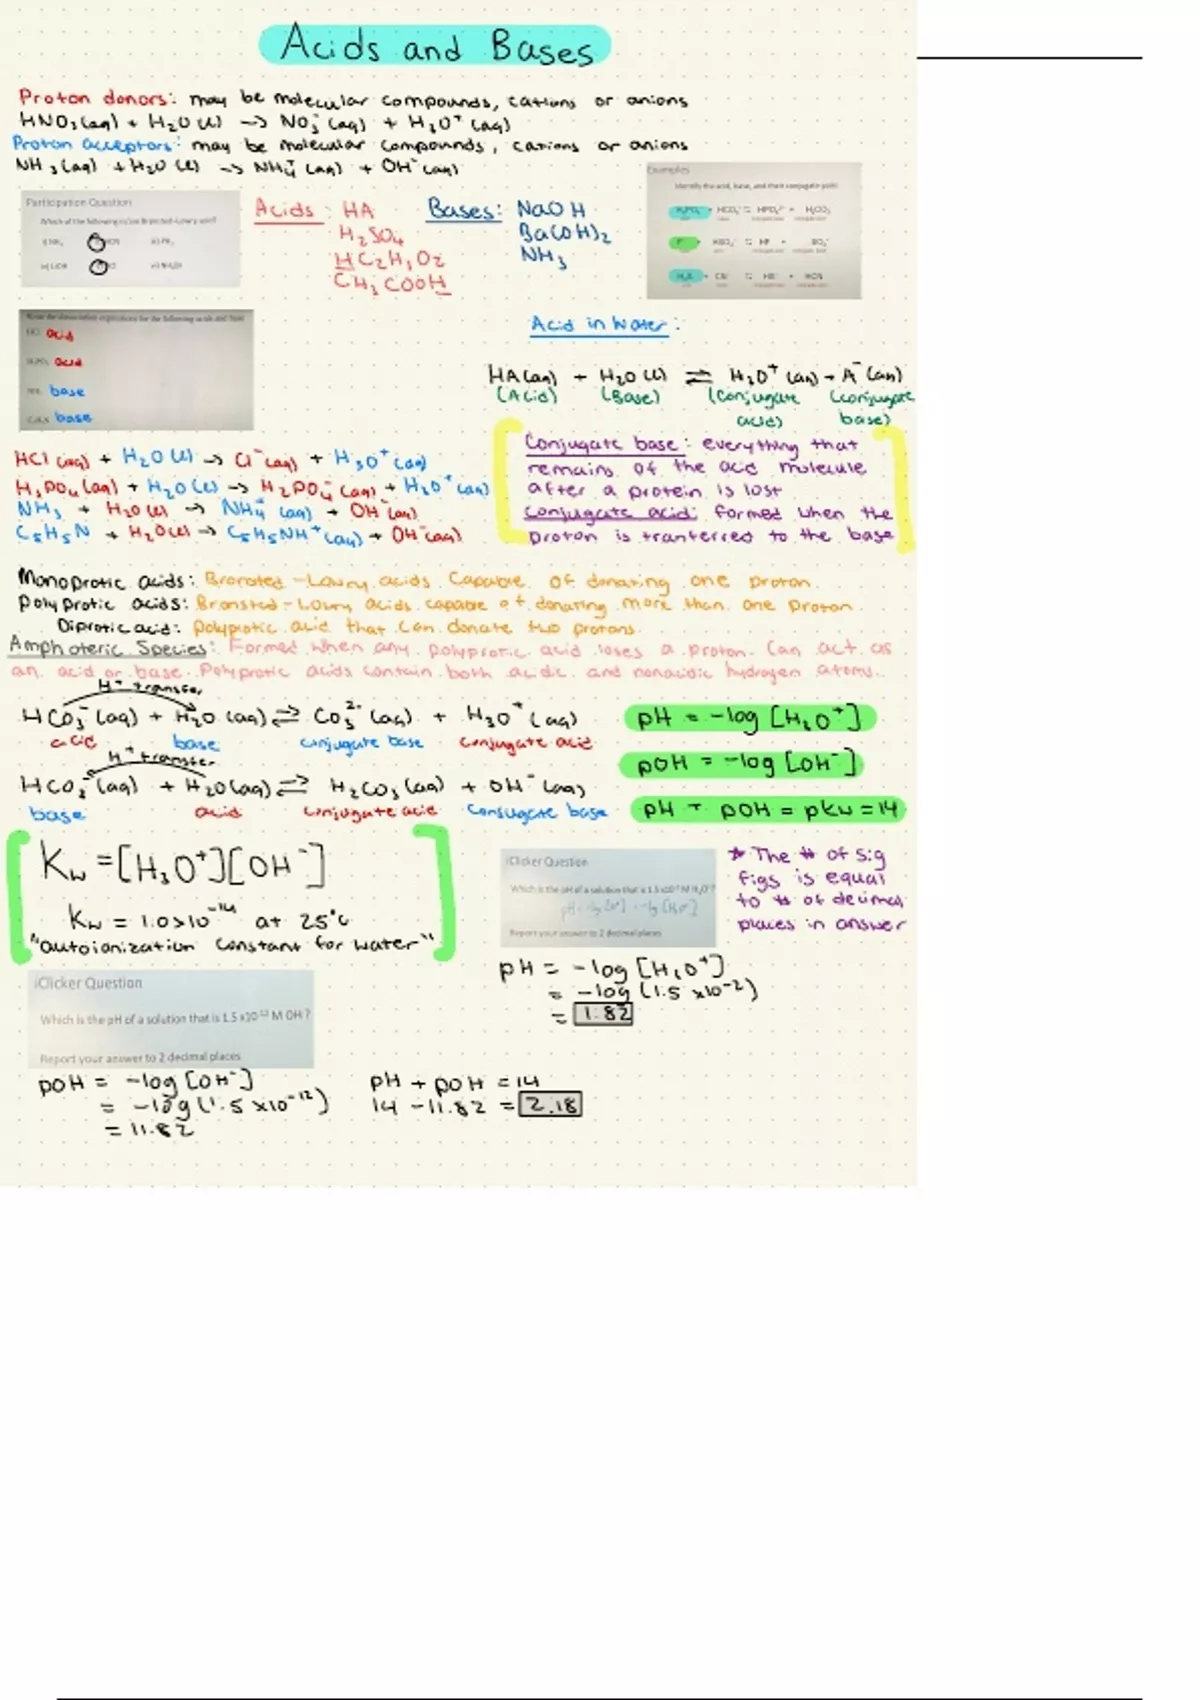 Acids and Bases
Proton donors: may be molecular compounds, cations or anions
HNO₃(aq) + H₂O(l) → NO₃⁻(aq) + H₃O⁺(aq)
Proton acceptors: may be molecular compounds, cations or anions
NH₃(aq) + H₂O(l) → NH₄⁺(aq) + OH⁻(aq)
Participation Question
Which of the following is/are Brønsted-Lowry acid?
Acids: HA
H₂SO₄
HC₂H₃O₂
CH₃COOH
Bases: NaOH
Ba(OH)₂
NH₃
Examples
Identify the acid, base, and their conjugate pairs
acid
acid
base
base
Acid in Water:
HA(aq) + H₂O(l) ⇌ H₃O⁺(aq) + A⁻(aq)
(Acid) (Base) (Conjugate acid) (conjugate base)
Conjugate base: everything that
remains of the acid molecule
after a protein is lost
Conjugate acid: formed when the
proton is tranferred to the base
HCl(aq) + H₂O(l) → Cl⁻(aq) + H₃O⁺(aq)
H₃PO₄(aq) + H₂O(l) → H₂PO₄⁻(aq) + H₃O⁺(aq)
NH₃ + H₂O(l) → NH₄⁺(aq) + OH⁻(aq)
C₅H₅N + H₂O(l) → C₅H₅NH⁺(aq) + OH⁻(aq)
Monoprotic acids: Bronsted-Lowry acids capable of donating one proton.
Polyprotic acids: Bronsted-Lowry acids capable of donating more than one proton.
Diprotic acid: polyprotic acid that can donate two protons.
Amphoteric Species: Formed when any polyprotic acid loses a proton. Can act as
an acid or base. Polyprotic acids contain both acidic and nonacidic hydrogen atoms.
H⁺ transfer
HCO₃⁻(aq) + H₂O(aq) ⇌ CO₃²⁻(aq) + H₃O⁺(aq)
acid base conjugate base conjugate acid
H⁺ transfer
HCO₃⁻(aq) + H₂O(aq) ⇌ H₂CO₃(aq) + OH⁻(aq)
base acid conjugate acid conjugate base
pH = -log[H₃O⁺]
pOH = -log[OH⁻]
pH + pOH = pKw = 14
Kw = [H₃O⁺][OH⁻]
Kw = 1.0×10⁻¹⁴ at 25°C
"autoionization constant for water"
iClicker Question
Which is the pH of a solution that is 1.5 x10⁻² M H₃O⁺?
Report your answer to 2 decimal places
* The # of sig
figs is equal
to # of decimal
places in answer
pH = -log[H₃O⁺]
= -log(1.5 ×10⁻²)
= 1.82
iClicker Question
Which is the pH of a solution that is 1.5 x10⁻¹² M OH⁻?
Report your answer to 2 decimal places
pOH = -log[OH⁻]
= -log(1.5 ×10⁻¹²)
= 11.82
pH + pOH = 14
14 - 11.82 = 2.18